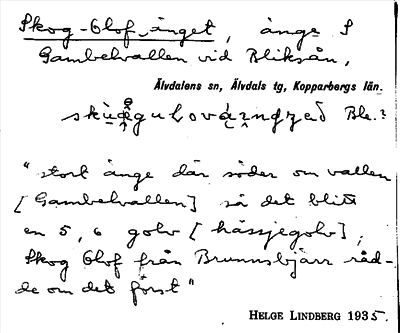 Skog-Olof-änget, änge S
Gambelvallen vid Bliksån,
Älvdalens sn, Älvdals tg, Kopparbergs län.
Ble.?
"stort änge där söder om vallen
[Gambelvallen] så det blitt
en 5, 6 golv [hässjegolv];
Skog Olof från Brunnsbjärr råd-
de om det först"
HELGE LINDBERG 1935.